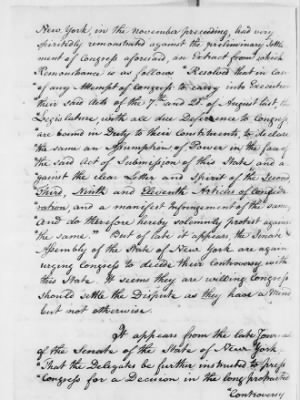 New York, in the november preceeding, had very
spiritedly remonstrated against the preliminary Settle
ment of Congress aforesaid, an Extract from which
Remonstrance is as follows "Resolved that in Case
of any Attempt of Congress to carry into Execution
their said Acts of the 7th and 21st of August last, the
Legislature, with all due Deference to Congress
are bound in Duty to their Constituents, to declare
the same an Assumption of Power in the face of
the said Act of Submission of this State and a
gainst the clear Letter and Spirit of the Second
Third, Ninth and Eleventh Articles of Confede
ration and a manifest Infringement of the same,
And do therefore hereby solemnly protest against
the same." But of late it appears the Senate &
Assembly of the State of New York are again
urging Congress to decide their Controversy with
this State. It seems they are willing Congress
should settle the Dispute as they have a mind
but not otherwise.
It appears from the late Journal
of the Senate of the State of New York
"That the Delegates be further instructed to press
"Congress for a Decision in the long protracted
"Controversy